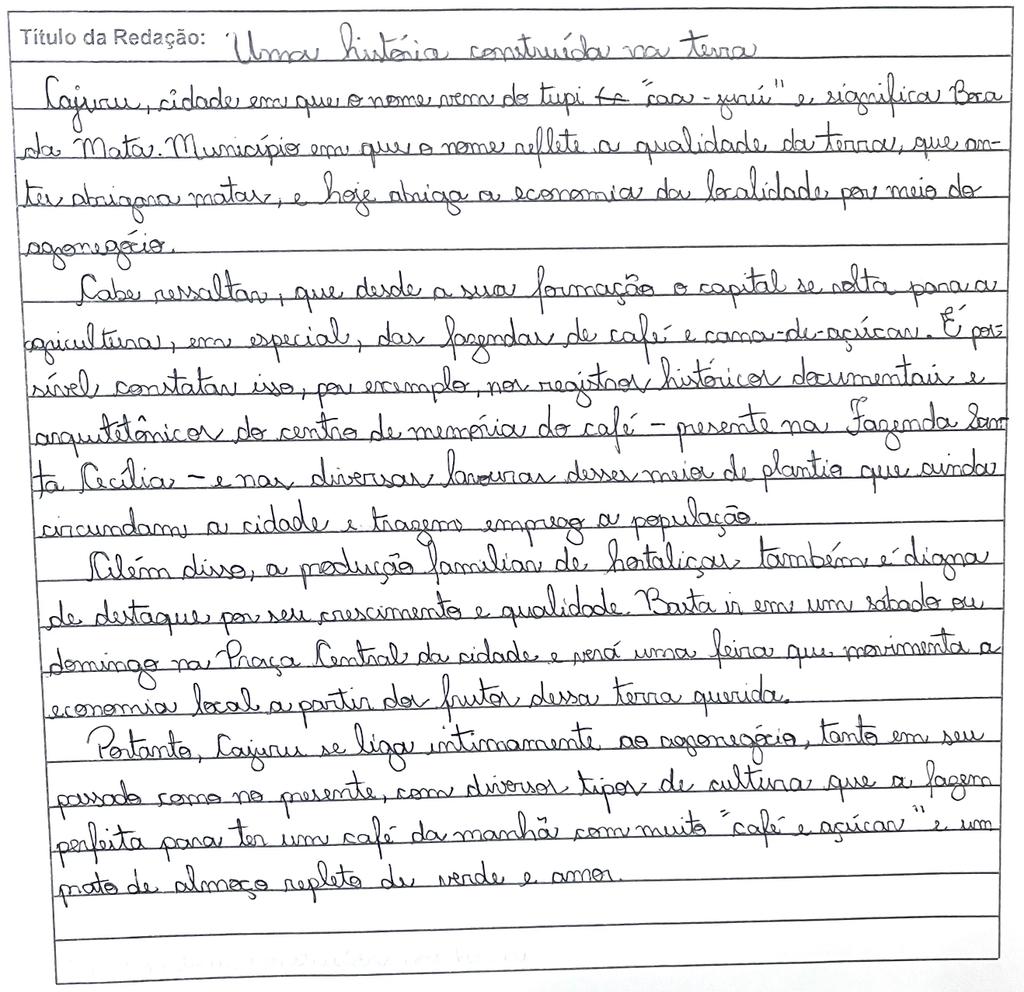 Título da Redação: Uma história construída na terra
Cajuru, cidade em que o nome vem do tupi "caa-yurú" e significa Boca
da Mata. Município em que o nome reflete a qualidade da terra, que an-
tes abrigava matas, e hoje abriga a economia da localidade por meio do
agronegócio.
Cabe ressaltar, que desde a sua formação o capital se volta para a
agricultura, em especial, das fazendas de café e cana-de-açúcar. É pos-
sível constatar isso, por exemplo, nos registros históricos documentais e
arquitetônicos do centro de memória do café - presente na Fazenda San
ta Cecília - e nas diversas lavouras desses meios de plantio que ainda
circundam a cidade e trazem emprego a população.
Além disso, a produção familiar de hortaliças também é digna
de destaque por seu crescimento e qualidade. Basta ir em um sábado ou
domingo na Praça Central da cidade e verá uma feira que movimenta a
economia local a partir dos frutos dessa terra querida.
Portanto, Cajuru se liga intimamente ao agronegócio, tanto em seu
passado como no presente, com diversos tipos de cultura que a fazem
perfeita para ter um café da manhã com muito "café e açúcar" e um
prato de almoço repleto de verde e amor.